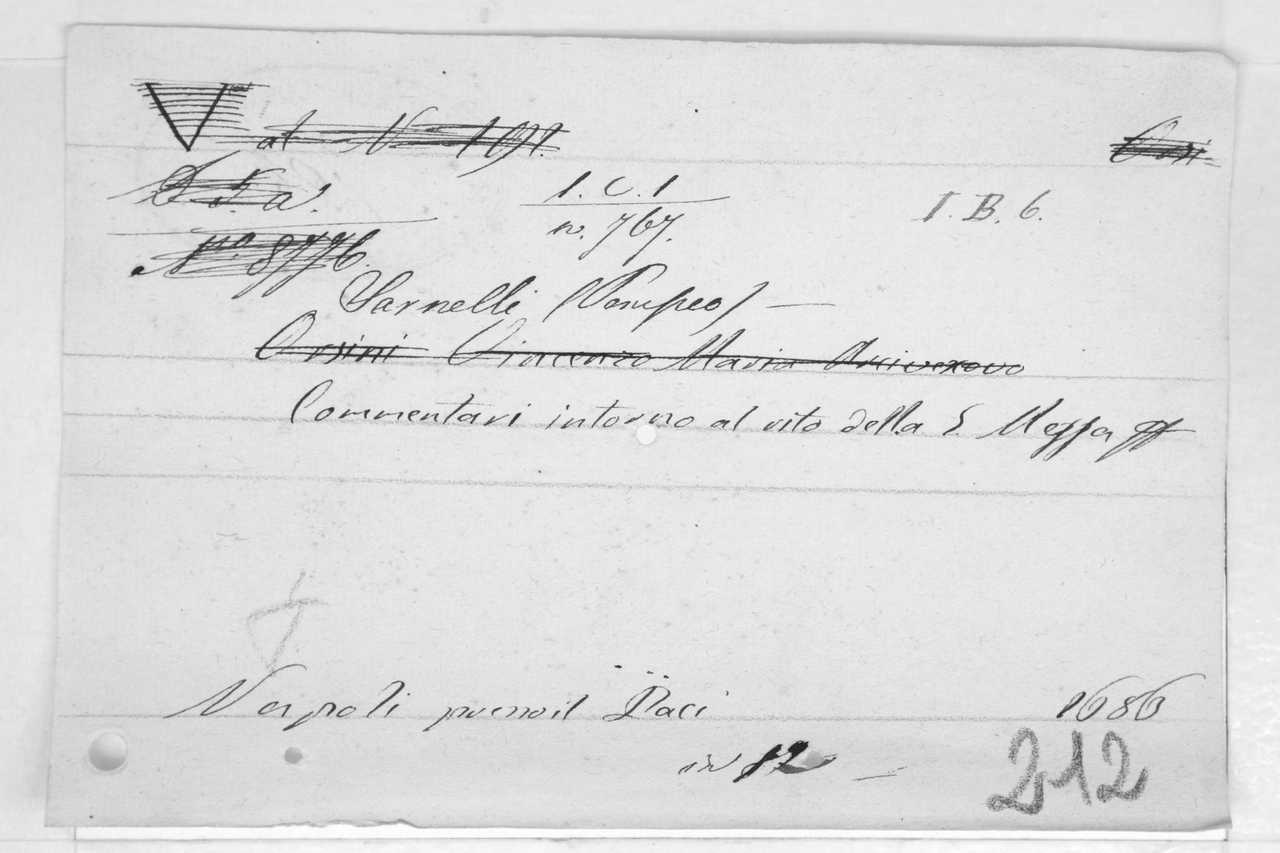 al N 191.
Orsi
D. 5. a.
1. C. 1
n. 767.
I. B. 6.
No 8776.
Sarnelli (Pompeo) —
Orsini Vincenzo Maria Arcivexovo
Commentari intorno al rito della S. Messa
Napoli presso il Paci 1686
in 12 —
212